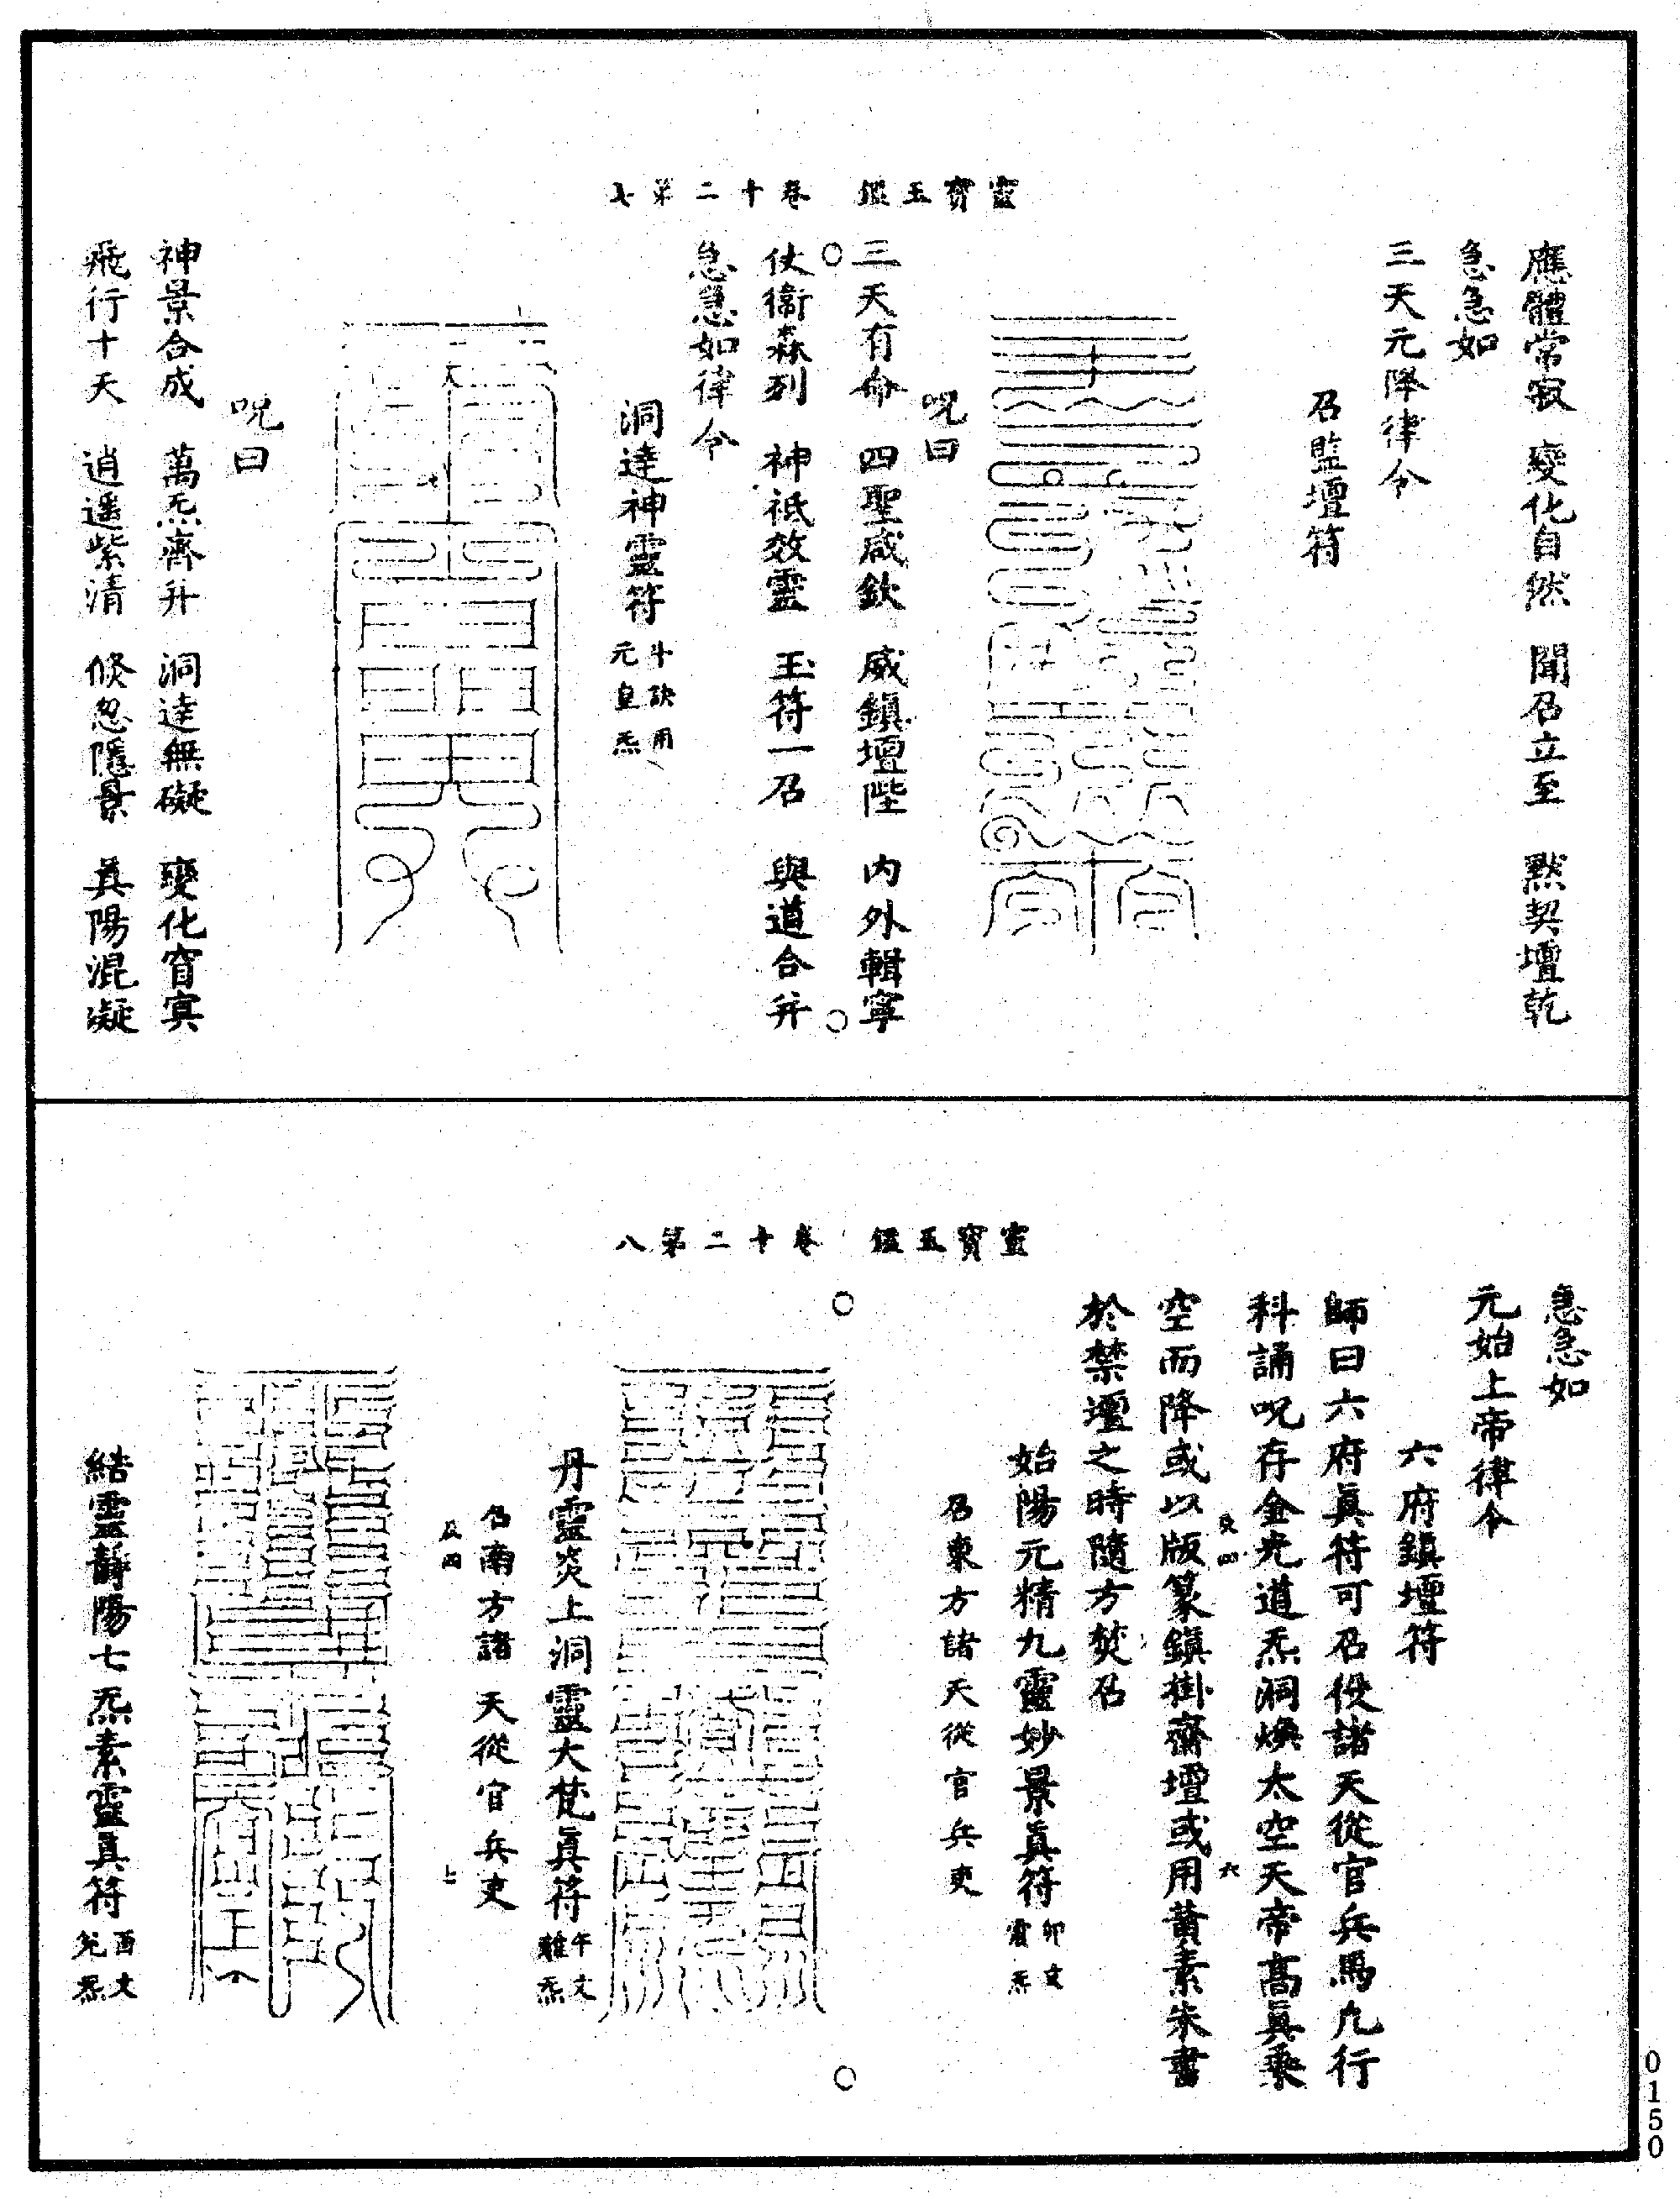 靈寶玉鑑 卷十二第七
應體常寂 變化自然 聞召立至 黙契壇乾
急急如
三天元降律令
召監壇符
呪曰
三天有命 四聖咸欽 威鎮壇陛 内外輯寧
仗衛森列 神祇效靈 玉符一召 與道合并
急急如律令
洞達神靈符 斗訣用
元皇炁
呪曰
神景合成 萬炁齊升 洞達無礙 變化窅冥
飛行十天 逍遥紫清 倐忽隱景 真陽混凝
靈寶玉鑑 卷十二第八
急急如
元始上帝律令
六府鎮壇符
師曰六府真符可召役諸天從官兵馬凡行
科誦呪存金光道炁洞煥太空天帝高真乘
空而降或以版篆鎮掛齋壇或用黄素朱書
於禁壇之時隨方焚召
始陽元精九靈妙景真符 卯文
震炁
召東方諸天從官兵吏
丹靈炎上洞靈大梵真符 午文
離炁
召南方諸天從官兵吏
結靈靜陽七炁素靈真符 酉文
兊炁
0150